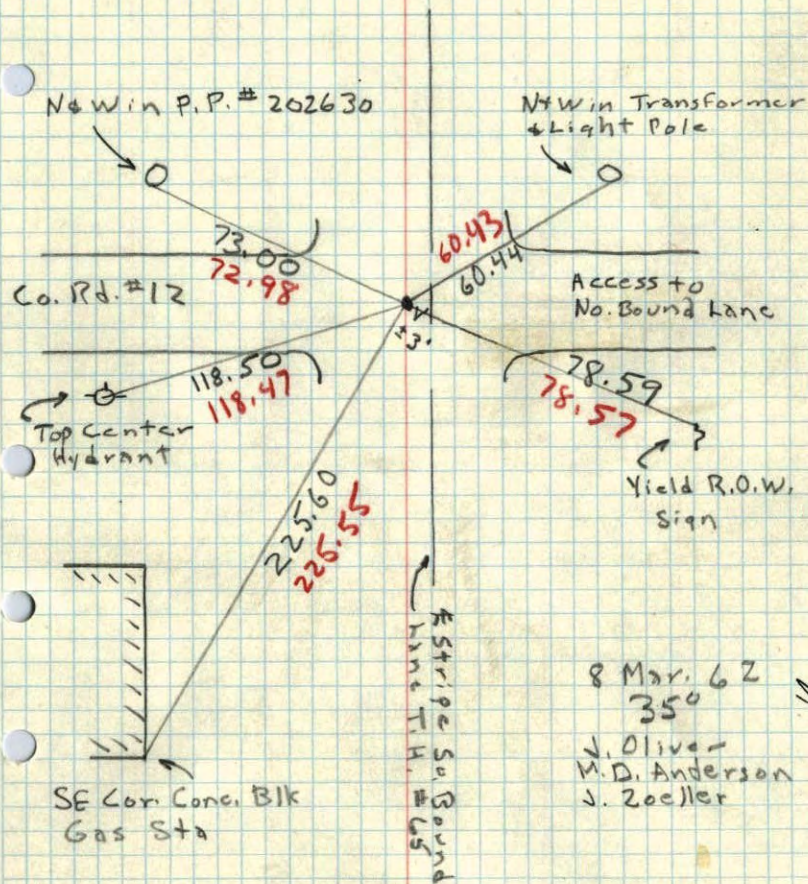 N&W in P.P. # 202630
N&W in Transformer
& Light Pole
73.00
72.98
60.43
60.44
Co. Rd. #12
Access to
No. Bound Lane
±3'
118.50
118.47
78.59
78.57
Top Center
Hydrant
Yield R.O.W.
Sign
225.60
225.55
℄ Stripe So. Bound
Lane T.H. #65
8 Mar. 62
35°
J. Oliver
M.D. Anderson
J. Zoeller
SE Cor. Conc. Blk
Gas Sta